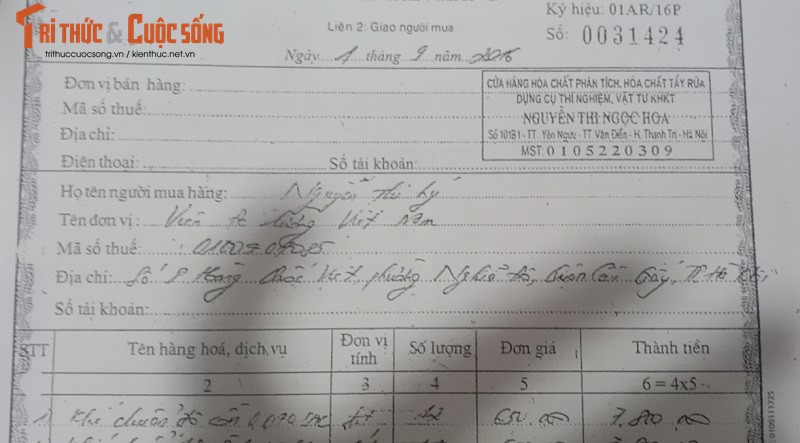 TRI THỨC & CUỘC SỐNG
trithuccuocsong.vn / kienthuc.net.vn
Ký hiệu: 01AR/16P
Liên 2: Giao người mua
Số: 0031424
Ngày 1 tháng 9 năm 2016
Đơn vị bán hàng:
CỬA HÀNG HÓA CHẤT PHÂN TÍCH, HÓA CHẤT TẨY RỬA
DỤNG CỤ THÍ NGHIỆM, VẬT TƯ KHKT
Mã số thuế:
NGUYỄN THỊ NGỌC HOA
Địa chỉ:
Số 101B1 - TT Yên Ngưu - TT Văn Điển - H. Thanh Trì - Hà Nội
MST: 0105220309
Điện thoại: Số tài khoản:
Họ tên người mua hàng: Nguyễn thị Lý
Tên đơn vị: Viện đo lường Việt Nam
Mã số thuế:
Địa chỉ: Số 8 Hoàng Quốc Việt, phường Nghĩa đô, Quận Cầu Giấy, TP Hà Nội
Số tài khoản:
STT Tên hàng hoá, dịch vụ Đơn vị tính Số lượng Đơn giá Thành tiền
2 3 4 5 6 = 4x5
1 Khí chuẩn độ cồn 650.000 7.800.000